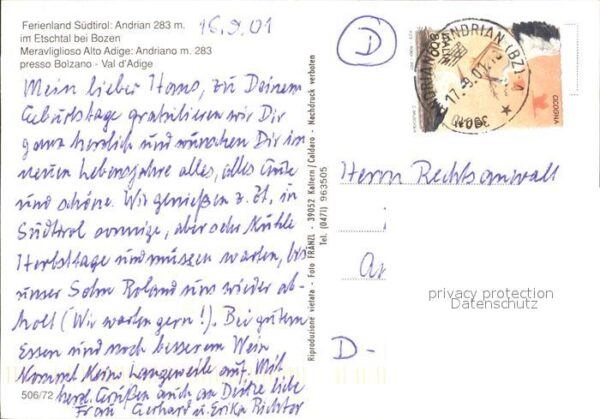 Ferienland Südtirol: Andrian 283 m.
im Etschtal bei Bozen
Meraviglioso Alto Adige: Andriano m. 283
presso Bolzano - Val d'Adige
16.9.01
Mein lieber Hano, zu Deinem
Geburtstage gratulieren wir Dir
ganz herzlich und wünschen Dir im
neuen Lebensjahre alles, alles Gute
und schöne. Wir genießen z. Zt. in
Südtirol sonnige, aber sehr kühle
Herbsttage und müssen warten, bis
unser Sohn Roland uns wieder ab-
holt (Wir warten gern!). Bei gutem
Essen und noch besserem Wein
kommt keine Langeweile auf. Mit
herzl. Grüßen auch an Deine liebe
Frau Gerhard u. Erika Richter
506/72
Riproduzione vietata - Foto FRANZL - 39052 Kaltern / Caldaro - Nachdruck verboten
Tel. (0471) 963505
D
ANDRIAN (BZ) A
17.9.01
ITALIA
800
CICOGNA
Herrn Rechtsanwalt
D-
privacy protection
Datenschutz